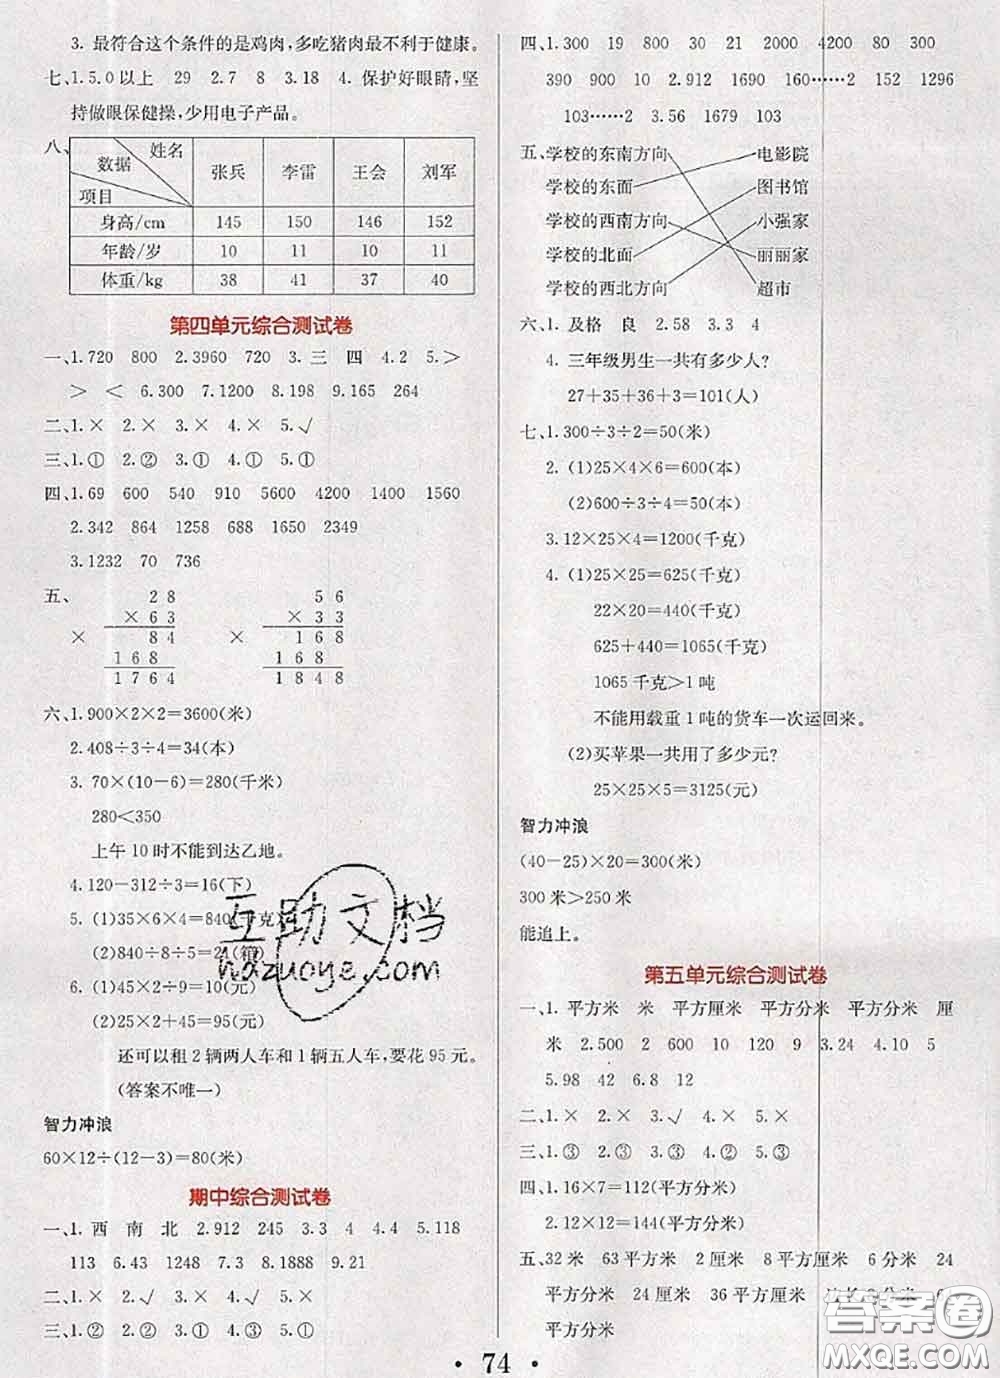 3. 最符合这个条件的是鸡肉,多吃猪肉最不利于健康。
七、1.5.0以上 29 2.7 8 3.18 4. 保护好眼睛,坚
持做眼保健操,少用电子产品。
八、
数据 姓名 项目 张兵 李雷 王会 刘军
身高/cm 145 150 146 152
年龄/岁 10 11 10 11
体重/kg 38 41 37 40
第四单元综合测试卷
一、1.720 800 2.3960 720 3. 三 四 4.2 5.>
> < 6.300 7.1200 8.198 9.165 264
二、1.× 2.× 3.× 4.× 5.√
三、1.① 2.② 3.① 4.① 5.①
四、1.69 600 540 910 5600 4200 1400 1560
2.342 864 1258 688 1650 2349
3.1232 70 736
五、 28 56
×63 ×33
× 84 × 168
168 168
1764 1848
六、1.900×2×2=3600(米)
2.408÷3÷4=34(本)
3. 70×(10-6)=280(千米)
280<350
上午10时不能到达乙地。
4.120-312÷3=16(下)
5. (1)35×6×4=840(千克)
(2)840÷8÷5=21(箱)
6. (1)45×2÷9=10(元)
(2)25×2+45=95(元)
还可以租2辆两人车和1辆五人车,要花95元。
(答案不唯一)
智力冲浪
60×12÷(12-3)=80(米)
期中综合测试卷
一、1. 西 南 北 2.912 245 3.3 4 4.4 5.118
113 6.43 1248 7.880 8.60 9.21
二、1.× 2.√ 3.× 4.√ 5.×
三、1.② 2.② 3.① 4.② 5.①
四、1.300 19 800 30 21 2000 4200 80 300
390 900 10 2.912 1690 160……2 152 1296
103……2 3.56 1679 103
五、学校的东南方向 电影院
学校的东面 图书馆
学校的西南方向 小强家
学校的北面 丽丽家
学校的西北方向 超市
六、1. 及格 良 2.58 3.3 4
4. 三年级男生一共有多少人?
27+35+36+3=101(人)
七、1.300÷3÷2=50(米)
2. (1)25×4×6=600(本)
(2)600÷3÷4=50(本)
3.12×25×4=1200(千克)
4. (1)25×25=625(千克)
22×20=440(千克)
625+440=1065(千克)
1065千克>1吨
不能用载重1吨的货车一次运回来。
(2)买苹果一共用了多少元?
25×25×5=3125(元)
智力冲浪
(40-25)×20=300(米)
300米>250米
能追上。
第五单元综合测试卷
一、1. 平方米 米 平方厘米 平方米 平方分米 厘
米 2.500 2 600 10 120 9 3.24 4.10 5
5.98 42 6.8 12
二、1.× 2.× 3.√ 4.× 5.×
三、1.③ 2.③ 3.③ 4.① 5.③
四、1.16×7=112(平方分米)
2.12×12=144(平方分米)
五、32米 63平方米 2厘米 8平方厘米 6分米 24
平方分米 24厘米 36平方厘米 边长2分米
平方分米
· 74 ·
互助文档
hazuoye.com
答案圈
MXQE.COM